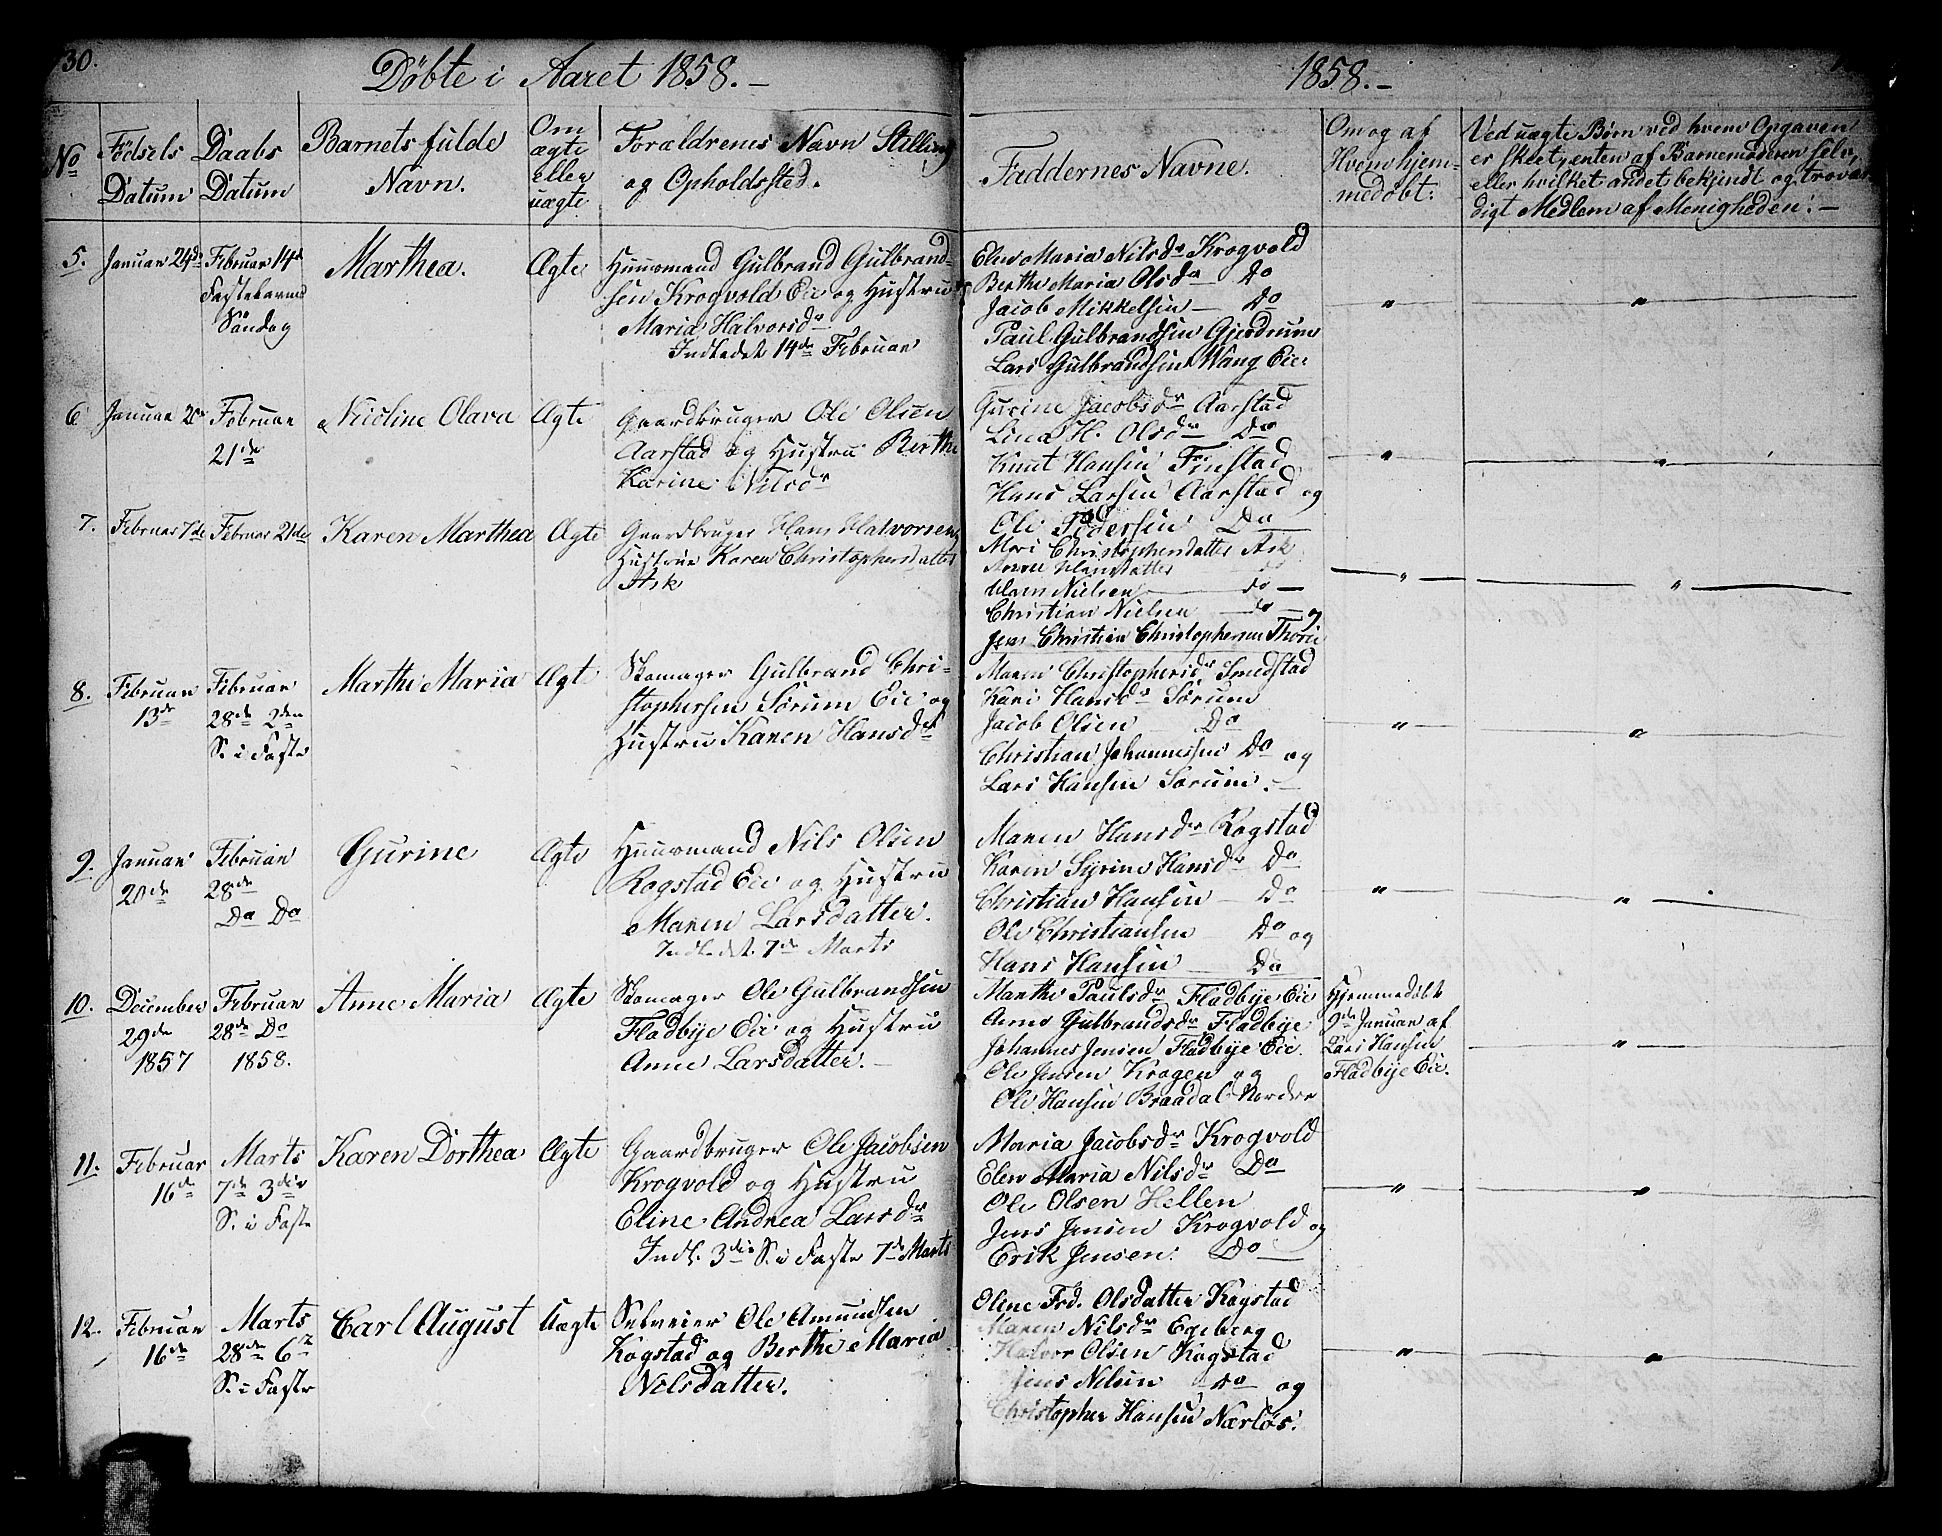 30.
Döbte i Aaret 1858.-
1858.-
No
Födsels Datum
Daabs Datum
Barnets fulde Navn.
Om ægte eller uægte
Forældrenes Navn Stilling og Opholdsted.
Faddernes Navne.
Om og af Hvem hjemmedöbt:
Ved uægte Börn ved hvem Opgaven
er skeet, enten af Barnemoderen selv,
eller hvilket andet bekjendt og trovær
digt Medlem af Menigheden:-
5.
Januar 24de
Februar 14de
Fastelavns
Söndag
Marthea.
Ægte
Huusmand Gulbrand Gulbrand-
sen Krogvold Eie og Hustru
Maria Halvorsdr
Indledet 14de Februar
Elen Maria Nilsdr Krogvold
Berthe Maria Olsdr Do
Jacob Mikkelsen - Do
Paul Gulbrandsen Gjerdrum
Lars Gulbrandsen Wang Eie.
6.
Januar
Februar
21de
Nicoline Olava
Ægte
Gaardbruger Ole Olsen
Aarstad og Hustru Berthe
Karine Nilsdr
Gurine Jacobsdr Aarstad
Lina H. Olsdr Do
Knut Hansen Finstad
Hans Larsen Aarstad og
Ole Pedersen Do
7.
Februar 7de
Februar 21de
Karen Marthea
Ægte
Gaardbruger Hans Halvorsen,
Hustrue Karen Christophersdatter
Ask
Mari Christophersdatter Ask
do
Hans Nielsen do -
Christian Nielsen - do - og
Jens Christian Christophersen
8.
Februar
13de
Februar
28de 2den
S. i Faste
Marthe Maria
Ægt
Skomager Gulbrand Chri-
stophersen Sörum Eie og
Hustru Karen Hansdr
Maren Christophersdr Smedstad
Kari Hansdr Sörum
Jacob Olsen Do
Christian Johannessen Do og
Lars Hansen Sörum.-
9.
Januar
20de
Februar
28de
Do Do
Gurine
Ægte
Huusmand Nils Olsen
Rogstad Eie og Hustru
Maren Larsdatter.
Indledet 7de Marts
Maren Hansdr Rogstad
Karen Syrine Hansdr Do
Christian Hansen - Do
Ole Christiansen - Do og
Hans Hansen - Do
10.
December
29de
1857
Februar
28de Do
1858.
Anne Maria
Ægte
Skomager Ole Gulbrandsen
Fladbye Eie og Hustru
Anne Larsdatter.-
Marthe Paulsdr Fladbye Eie
Anne Gulbrandsdr Fladbye
Johannes Jensen Fladbye Eie.
Ole Jensen Krogen og
Ole Hansen Braadal Nordre
Hjemmedöbt
9de Januar af
Lars Hansen
Fladbye Eie.
11.
Februar
16de
Marts
7de 3die
S. i Faste
Karen Dorthea
Ægte
Gaardbruger Ole Jacobsen
Krogvold og Hustru
Eline Andrea Larsdr
Indl. 3die S. i Faste 7de Marts
Maria Jacobsdr Krogvold
Elen Maria Nilsdr Do
Ole Olsen Hellen
Jens Jensen Krogvold og
Erik Jensen. Do
12.
Februar
16de
Marts
28de 6te
S. i Faste
Carl August
Uægte
Selveier Ole Amundsen
Kogstad og Berthe Maria
Nilsdatter.
Oline Frd. Olsdatter Kogstad
Maren Nilsdr Egeberg
Halvor Olsen Kogstad
Jens Nilsen do og
Christopher Hansen Nærlös.